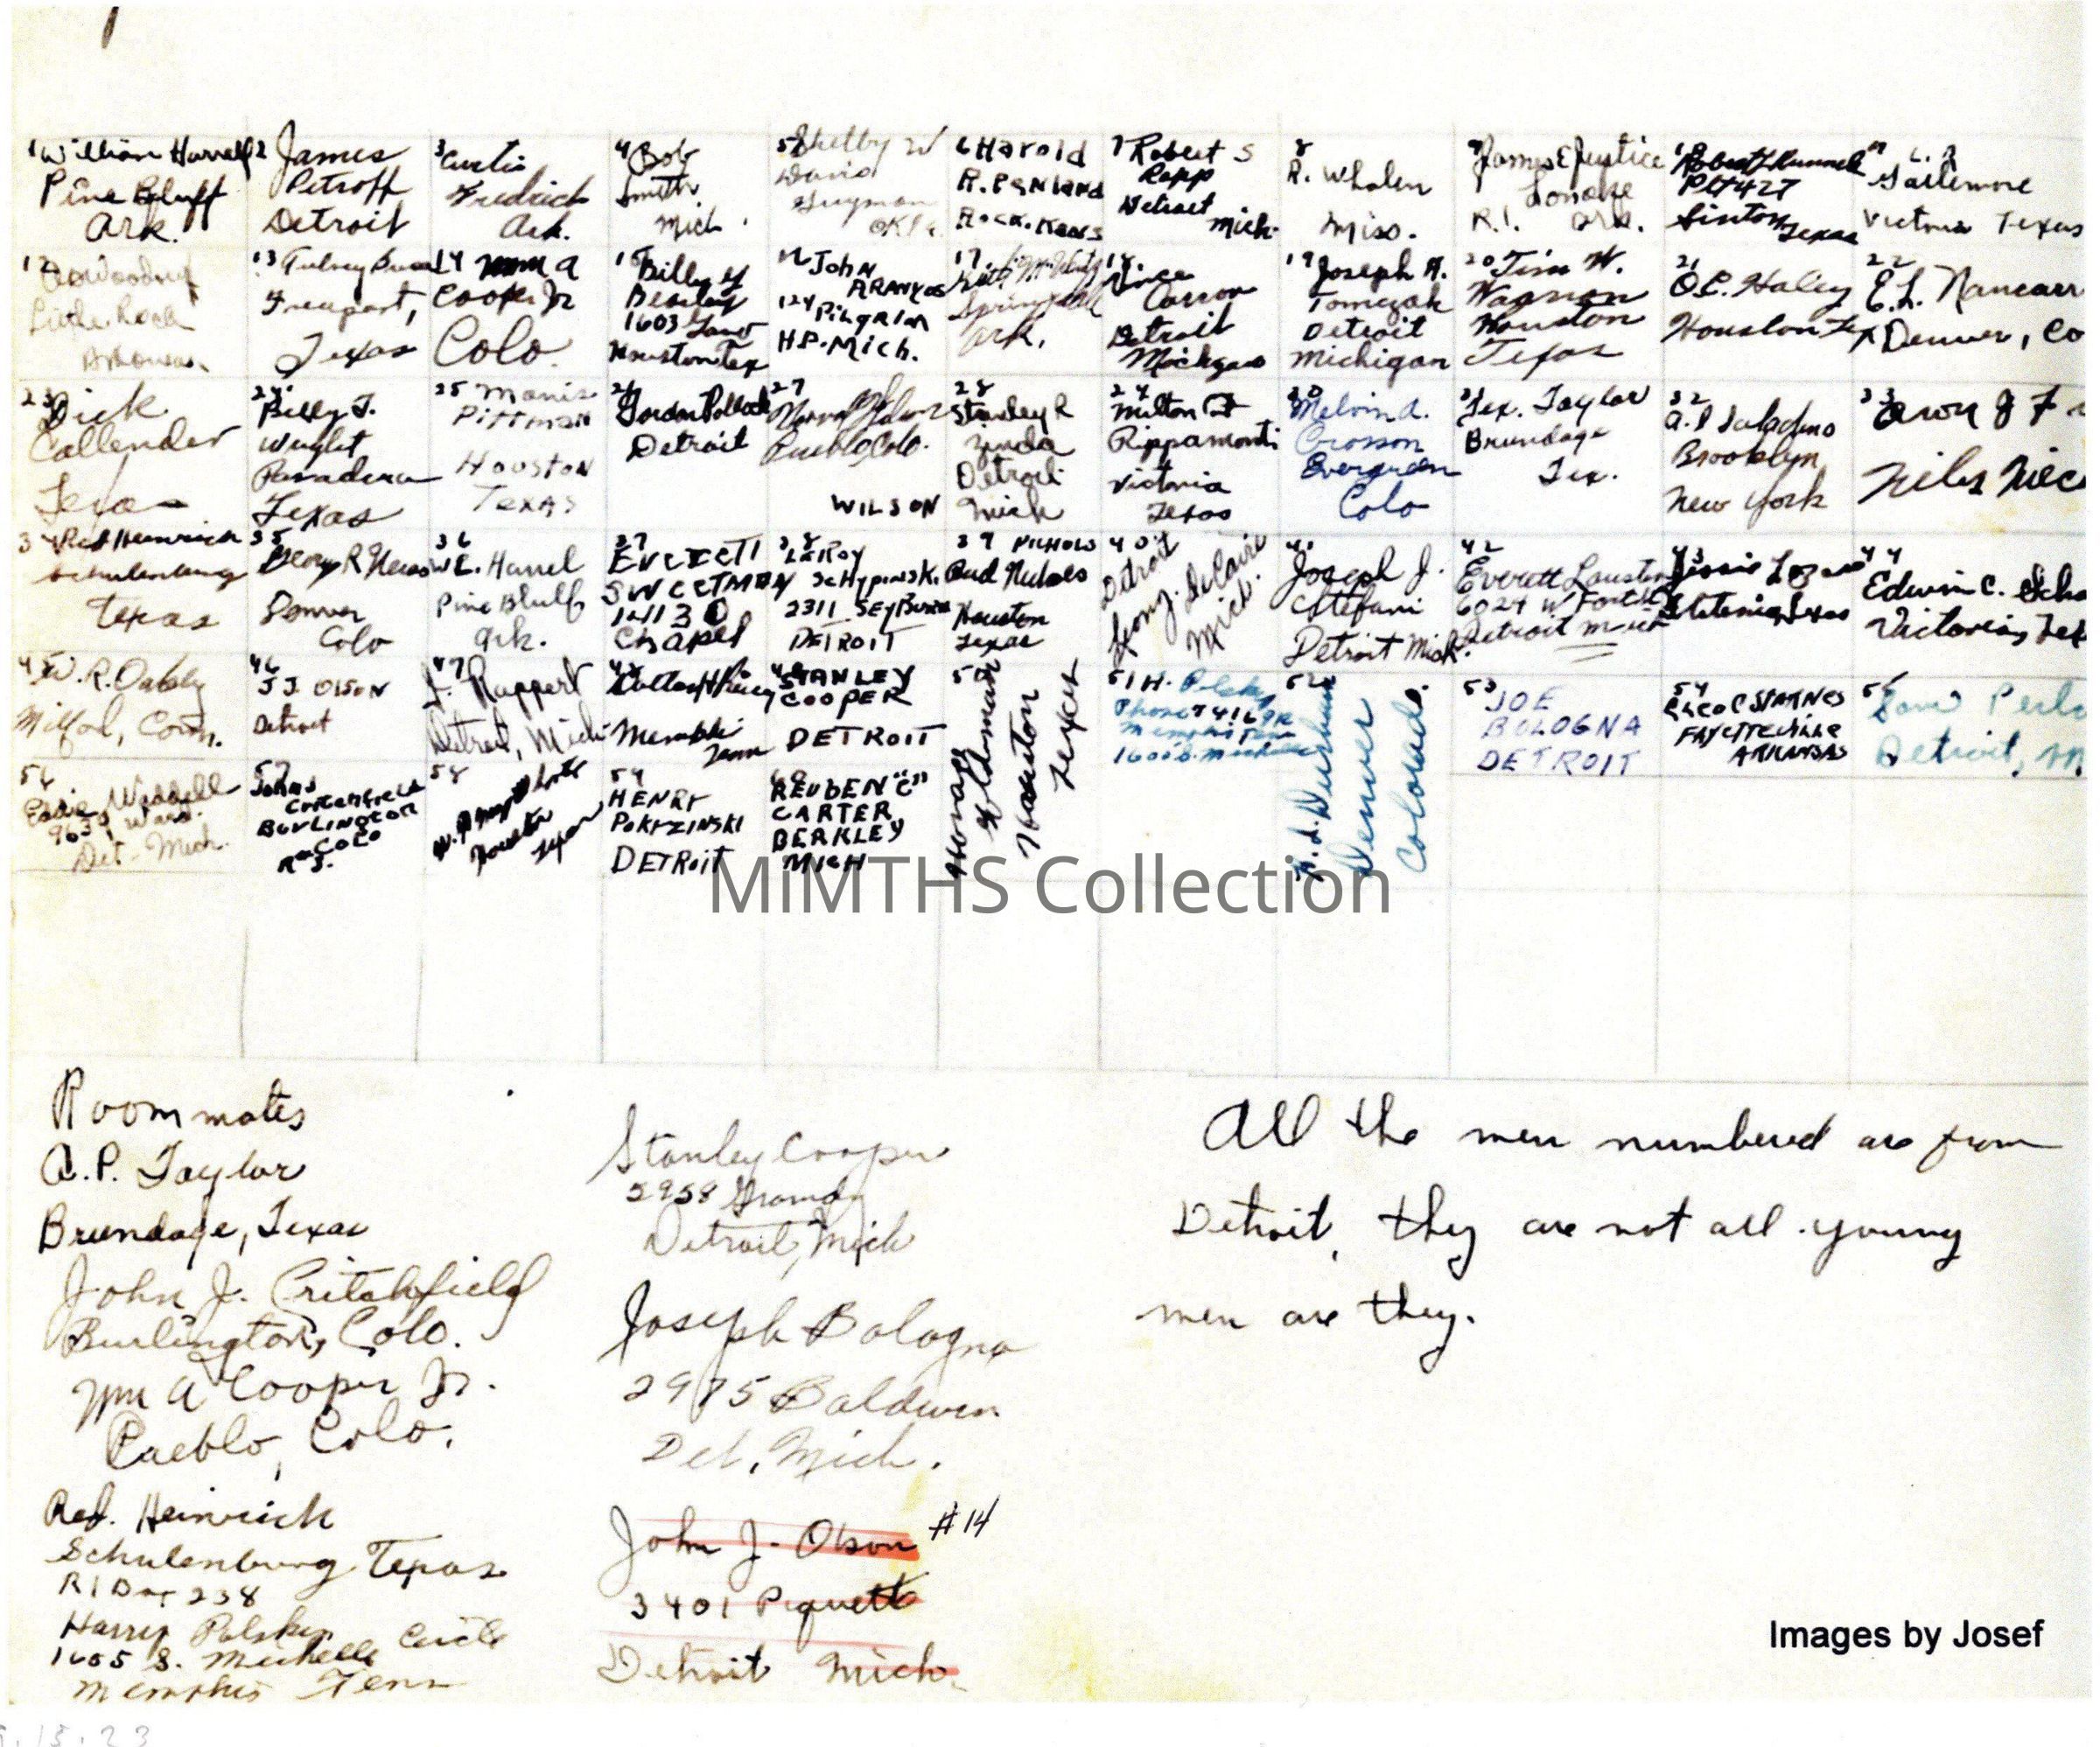 1 William Harrell
Pine Bluff
Ark.
2 James
Petroff
Detroit
3 Curtis
Fredrick
Ark.
4 Bob
Smith
Mich.
5 Shelby W
Davis
Guymon
Okla.
6 Harold
R. Penland
Rock. Kans
7 Robert S
Rapp
Detroit
Mich.
8
R. Whalen
Miss.
9 James E Justice
Lonoke
R.1. Ark.
10
Plt 427
Sinton
Texas
11 L. J
Victoria Texas
12
Little Rock
Arkansas
13
Freeport,
Texas
14 Wm A
Cooper Jr
Colo.
15 Billy
Beasley
1603
Houston Tex
16 John
ARANYOS
124 Pilgrim
H.P. Mich.
17
Ark.
18 Vince
Carron
Detroit
Michigan
19 Joseph A.
Tomczak
Detroit
Michigan
20 Tim W.
Wagnon
Houston
Texas
21
O.C. Haley
Houston Tex
22
E.L. Nancarr
Denver, Co
23 Dick
Callender
Texas
24 Billy J.
Wright
Pasadena
Texas
25
Pittman
Houston
Texas
26
Gordon Pollock
Detroit
27
Pueblo, Colo.
WILSON
28
Stanley R
Zynda
Detroit
Mich
29
Milton
Rippamonti
Victoria
Texas
30
Melvin A.
Crosson
Evergreen
Colo
31 Tex. Taylor
Brundage
Tex.
32
A. P Saladino
Brooklyn
New York
33
Niles
34 Red Heinrich
Schulenburg
Texas
35
George R
Denver
Colo
36
W E. Harrel
Pine Bluff
Ark.
37
EVERETT
SWEETMAN
Chapel
38
LeRoy
2311
DETROIT
39 NICHOLS
Bud Nichols
Houston
Texas
40 Detroit
Mich.
41
Joseph J.
Stefani
Detroit Mich.
42
Everett
6024 W Fort St
Detroit Mich
43
Jessie
Texas
44
Edwin C. Scha
Victoria, Tex
45
W. R. Oakley
Milford, Conn.
46
J J. Olson
Detroit
47
J. Ruppert
Detroit, Mich
48
Memphis
Tenn
49
STANLEY
COOPER
DETROIT
50
Howard
Holdman
Houston
Texas
51 H. Polsky
Phone
Memphis Tenn
1605 S. Michelle
52
Denver
Colorado.
53 JOE
BOLOGNA
DETROIT
54
CLEO C STARNES
FAYETTEVILLE
ARKANSAS
55
Detroit, M
56
Eddie Waddell
Det- Mich.
57
John J
CRITCHFIELD
BURLINGTON
COLO
58
Houston
Texas
59
HENRY
POKRZINSKI
DETROIT
60
REUBEN "C"
CARTER
BERKLEY
MICH
MiMTHS Collection
Roommates
A. P. Taylor
Brundage, Texas
John J. Critchfield
Burlington, Colo.
Wm A Cooper Jr.
Pueblo, Colo.
Red. Heinrich
Schulenburg Texas
R 1 Box 238
Harry Polsky
1605 S. Michelle Circle
Memphis Tenn
Stanley Cooper
5958 Grandy
Detroit, Mich
Joseph Bologna
2975 Baldwin
Det, Mich.
John J. Olson #14
3401 Piquette
Detroit Mich.
All the men numbered are from
Detroit, they are not all young
men are they.
Images by Josef
15.23